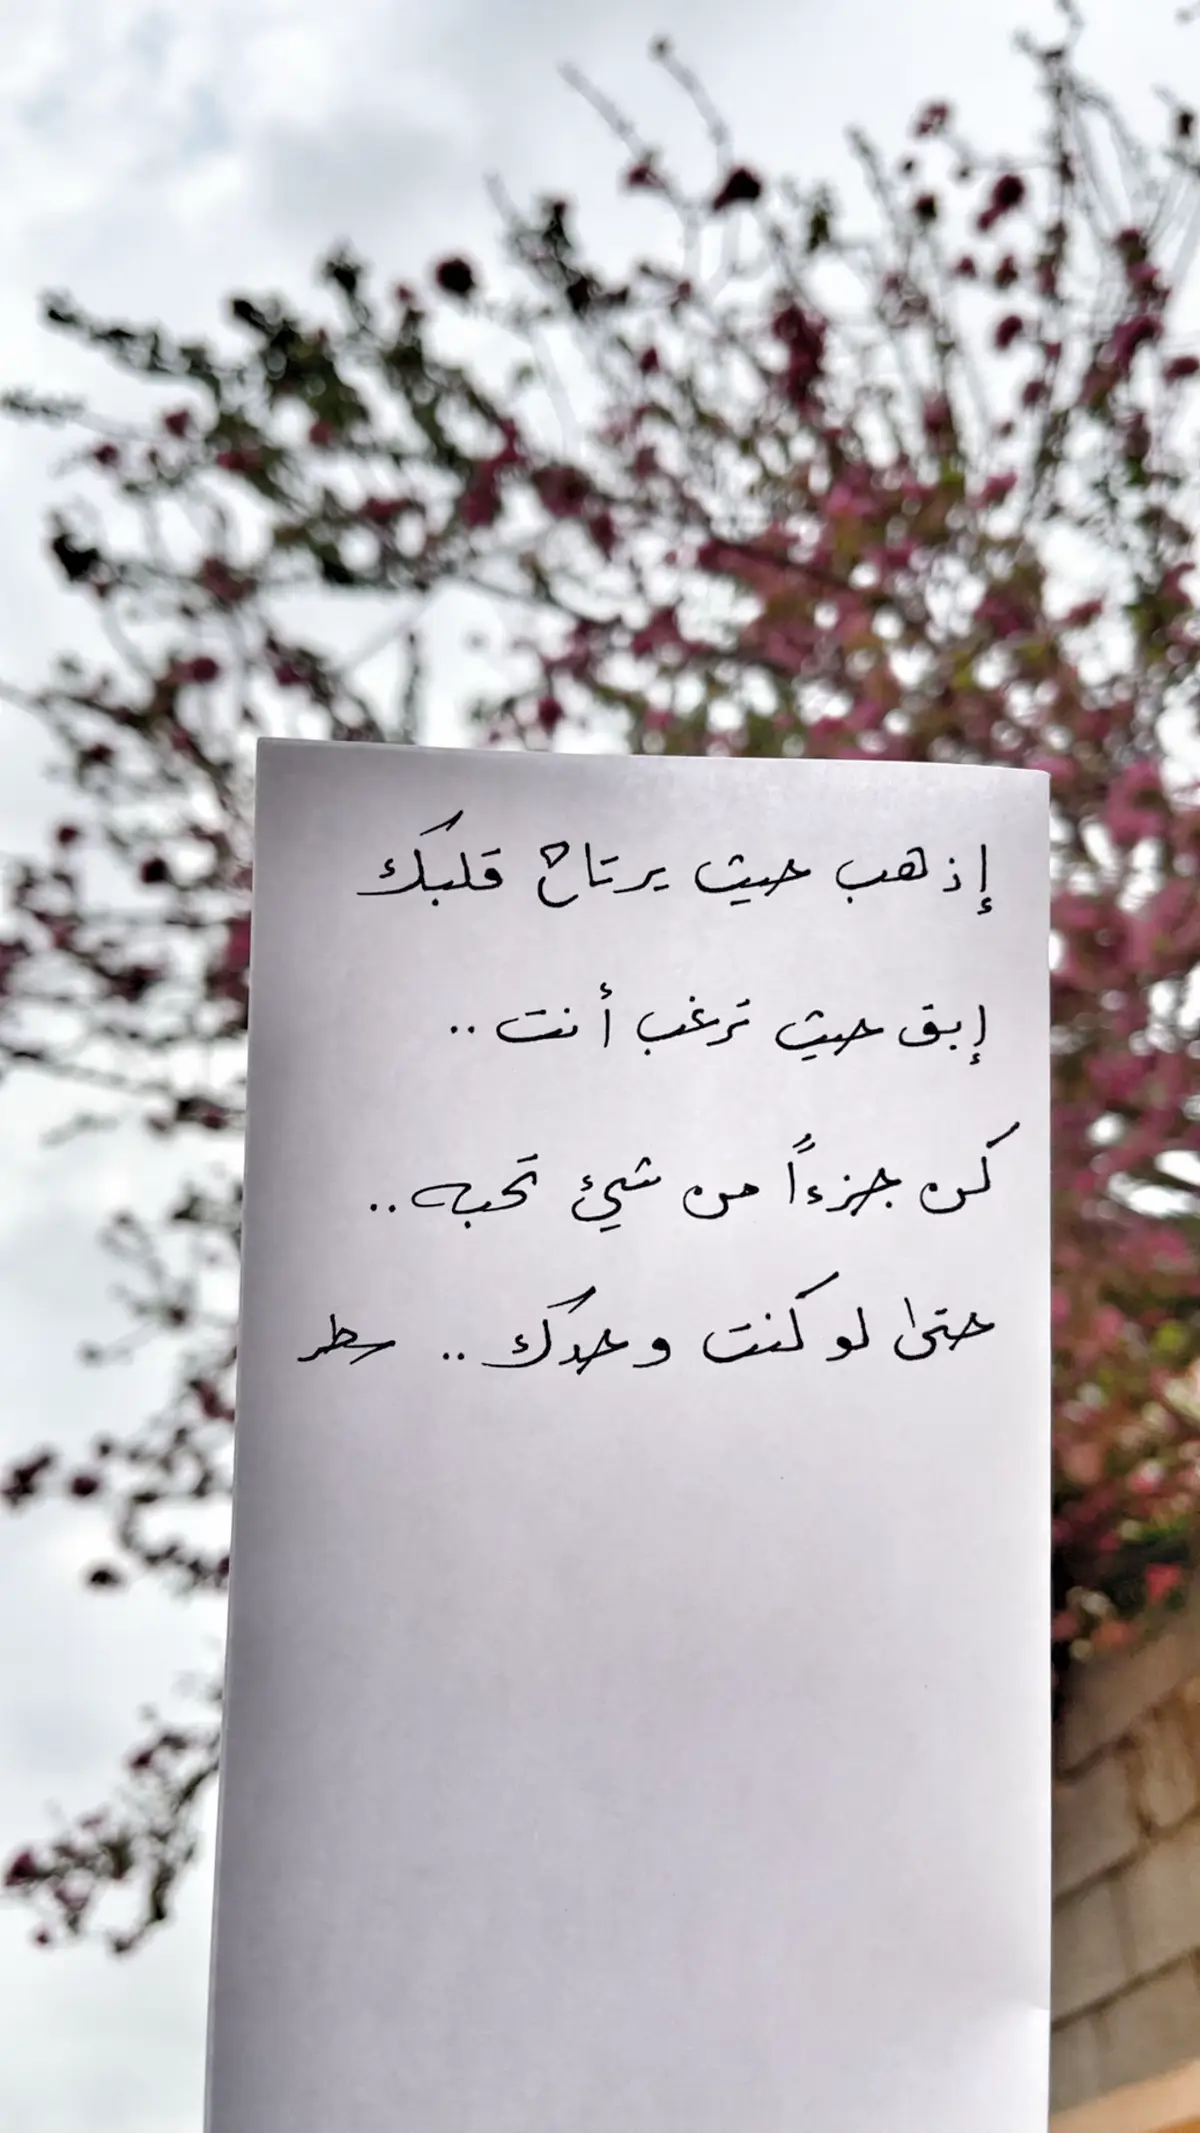 إذهب حيث يرتاح قلبك
إبق حيث ترغب أنت ..
كن جزءاً من شيئ تحبه ..
حتى لو كنت وحدك .. سطر